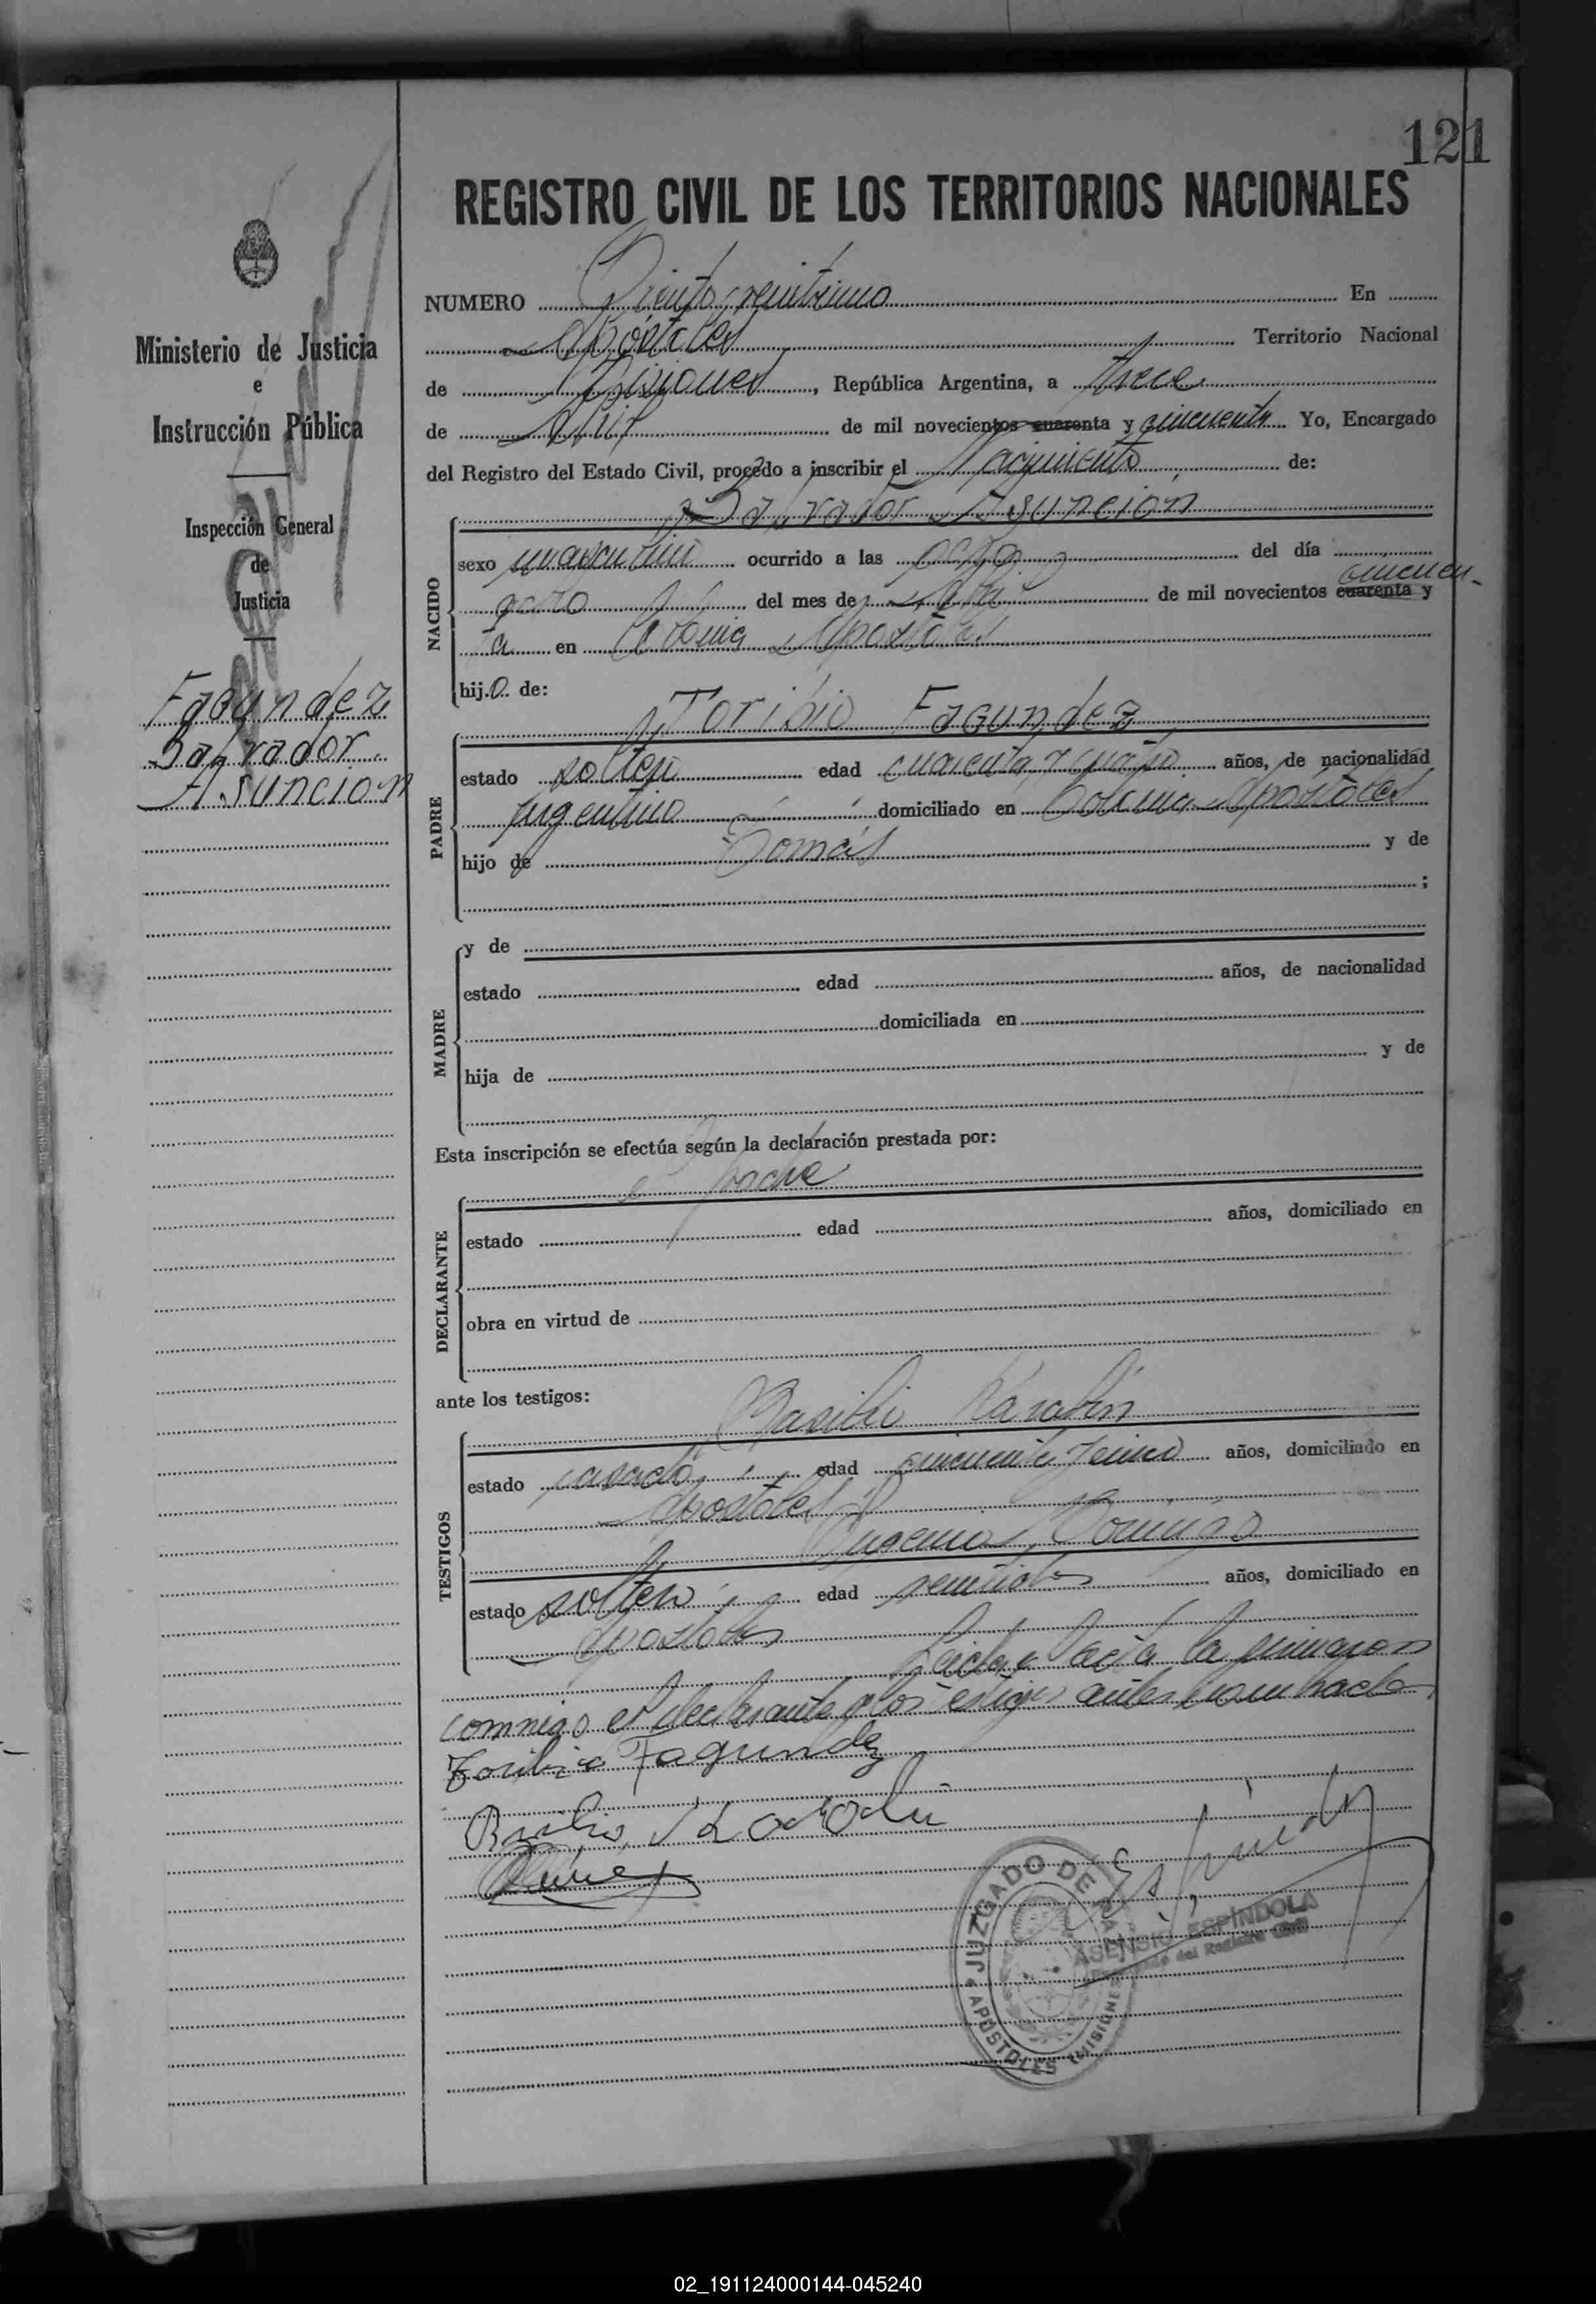 121
REGISTRO CIVIL DE LOS TERRITORIOS NACIONALES
Ministerio de Justicia
e
Instrucción Pública
Inspección General
de
Justicia
Fagundez
Salvador
Asuncion
NUMERO Ciento veintiuno En
Apóstoles Territorio Nacional
de Misiones, República Argentina, a trece
de Abril de mil novecientos cuarenta y cincuenta Yo, Encargado
del Registro del Estado Civil, procedo a inscribir el Nacimiento de:
Salvador Asunción
NACIDO
sexo masculino ocurrido a las ocho del día
cincuen-
del mes de Abril de mil novecientos cuarenta y
ta en Colonia Apóstoles
hijo de:
Toribio Fagundez
PADRE
estado soltero edad cuarenta y cuatro años, de nacionalidad
Argentino domiciliado en Colonia Apóstoles
hijo de Tomás y de
;
MADRE
y de
estado edad años, de nacionalidad
domiciliada en
hija de y de
Esta inscripción se efectúa según la declaración prestada por:
el padre
DECLARANTE
estado edad años, domiciliado en
obra en virtud de
ante los testigos:
Basilio
TESTIGOS
estado casado edad cincuenta y cinco años, domiciliado en
Apóstoles
Eugenio Domingo
estado soltero edad veintidos años, domiciliado en
Apóstoles
Leida el acta la firmaron
conmigo el declarante y los testigos antes nombrados
Toribio Fagundez
Basilio
JUZGADO DE PAZ
APÓSTOLES (MISIONES)
ASENSIO ESPÍNDOLA
Encargado del Registro Civil
02_191124000144-045240